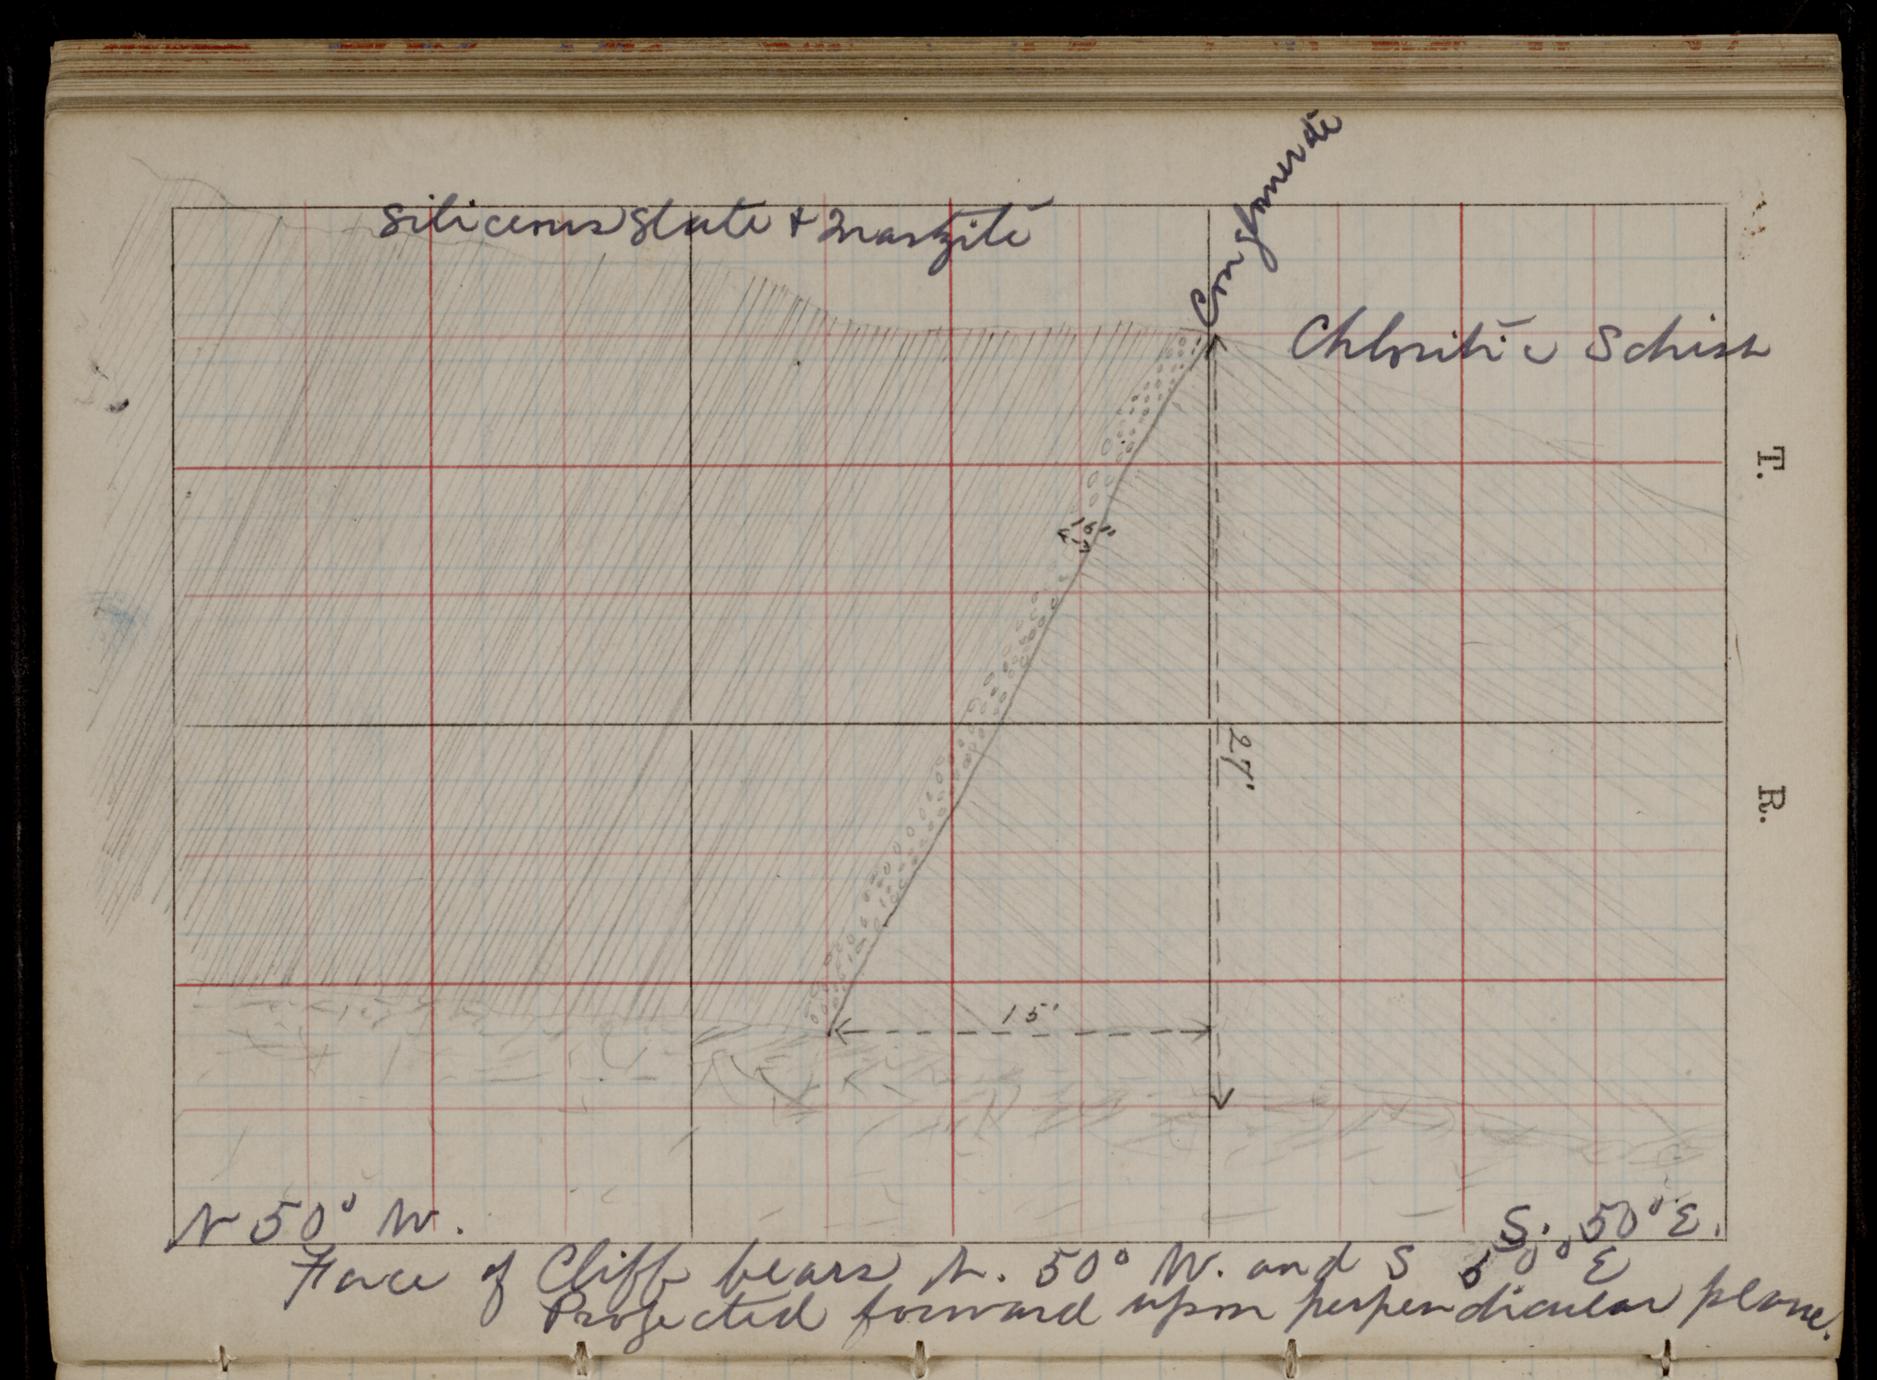 Conglomerate
Siliceous Slate & Quartzite
Chloritic Schist
T.
16"
27'
R.
15'
N 50° W.
S. 50° E.
Face of Cliff bears N. 50° W. and S 50° E
Projected forward upon perpendicular plane.